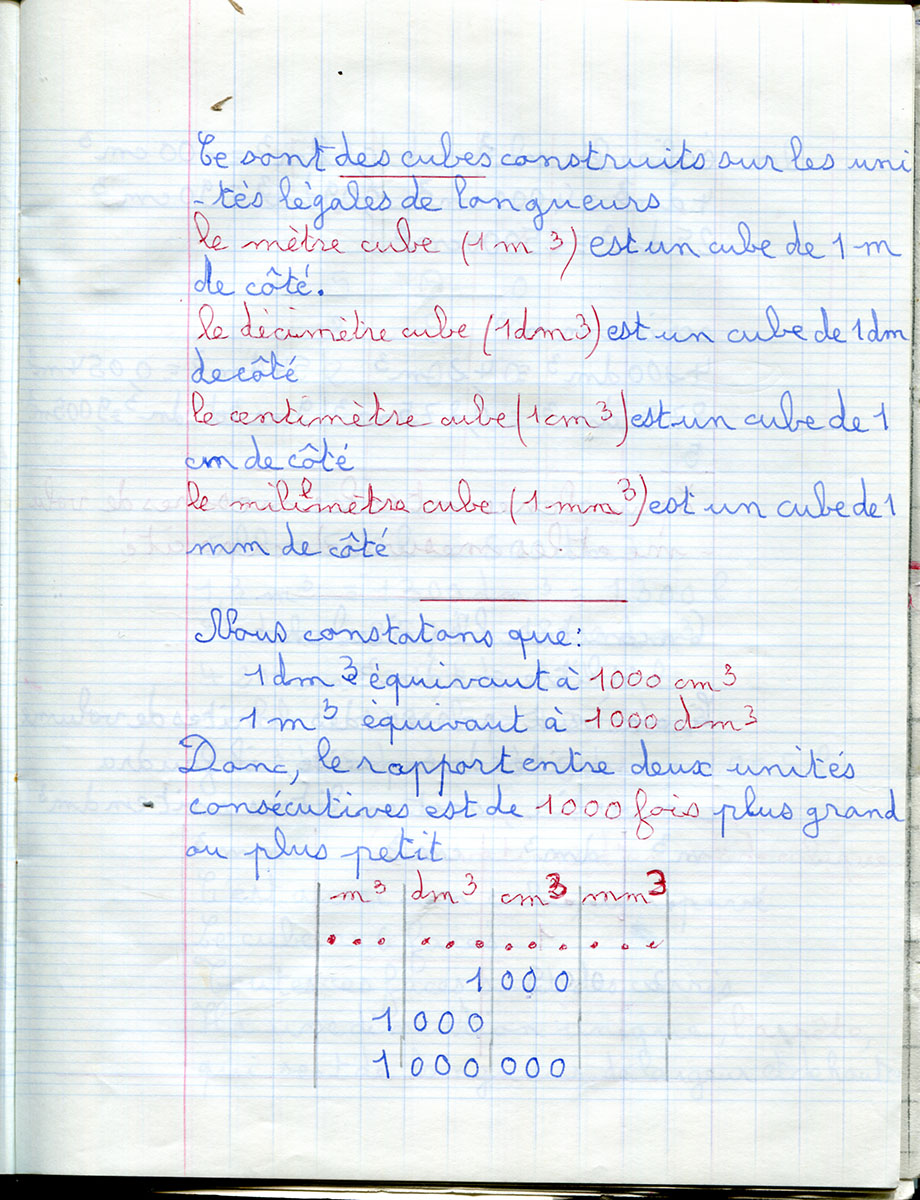 Ce sont des cubes construits sur les uni
-tés légales de longueurs
le mètre cube (1 m³) est un cube de 1 m
de côté.
le décimètre cube (1dm³) est un cube de 1dm
de côté
le centimètre cube (1cm³) est un cube de 1
cm de côté
le millimètre cube (1 mm³) est un cube de 1
mm de côté
Nous constatons que:
1dm³ équivaut à 1000 cm³
1 m³ équivaut à 1000 dm³
Donc, le rapport entre deux unités
consécutives est de 1000 fois plus grand
ou plus petit
m³ dm³ cm³ mm³
. . . . . . . . . . . .
1 0 0 0
1 0 0 0
1 0 0 0 0 0 0